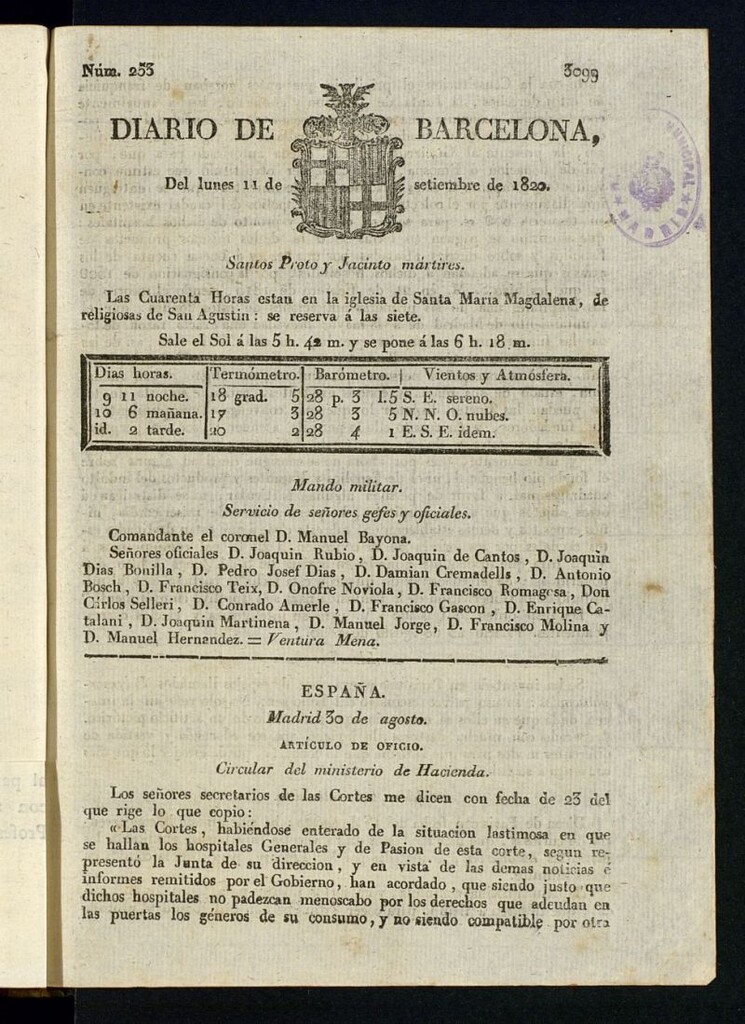 Núm. 253 3099
DIARIO DE BARCELONA,
Del lunes 11 de setiembre de 1820.
MUNICIPAL
MADRID
Santos Proto y Jacinto mártires.
Las Cuarenta Horas estan en la iglesia de Santa María Magdalena, de
religiosas de San Agustin: se reserva á las siete.
Sale el Sol á las 5 h. 42 m. y se pone á las 6 h. 18 m.
Dias horas. Termómetro. Barómetro. Vientos y Atmósfera.
9 11 noche. 18 grad. 5 28 p. 3 l. 5 S. E. sereno.
10 6 mañana. 17 3 28 3 5 N. N. O. nubes.
id. 2 tarde. 20 2 28 4 1 E. S. E. idem.
Mando militar.
Servicio de señores gefes y oficiales.
Comandante el coronel D. Manuel Bayona.
Señores oficiales D. Joaquin Rubio, D. Joaquin de Cantos, D. Joaquin
Dias Bonilla, D. Pedro Josef Dias, D. Damian Cremadells, D. Antonio
Bosch, D. Francisco Teix, D. Onofre Noviola, D. Francisco Romagosa, Don
Cárlos Selleri, D. Conrado Amerle, D. Francisco Gascon, D. Enrique Ca-
talani, D. Joaquin Martinena, D. Manuel Jorge, D. Francisco Molina y
D. Manuel Hernandez. = Ventura Mena.
ESPAÑA.
Madrid 30 de agosto.
ARTÍCULO DE OFICIO.
Circular del ministerio de Hacienda.
Los señores secretarios de las Cortes me dicen con fecha de 23 del
que rige lo que copio:
«Las Cortes, habiéndose enterado de la situacion lastimosa en que
se hallan los hospitales Generales y de Pasion de esta corte, segun re-
presentó la Junta de su direccion, y en vista de las demas noticias é
informes remitidos por el Gobierno, han acordado, que siendo justo que
dichos hospitales no padezcan menoscabo por los derechos que adeudan en
las puertas los géneros de su consumo, y no siendo compatible por otra